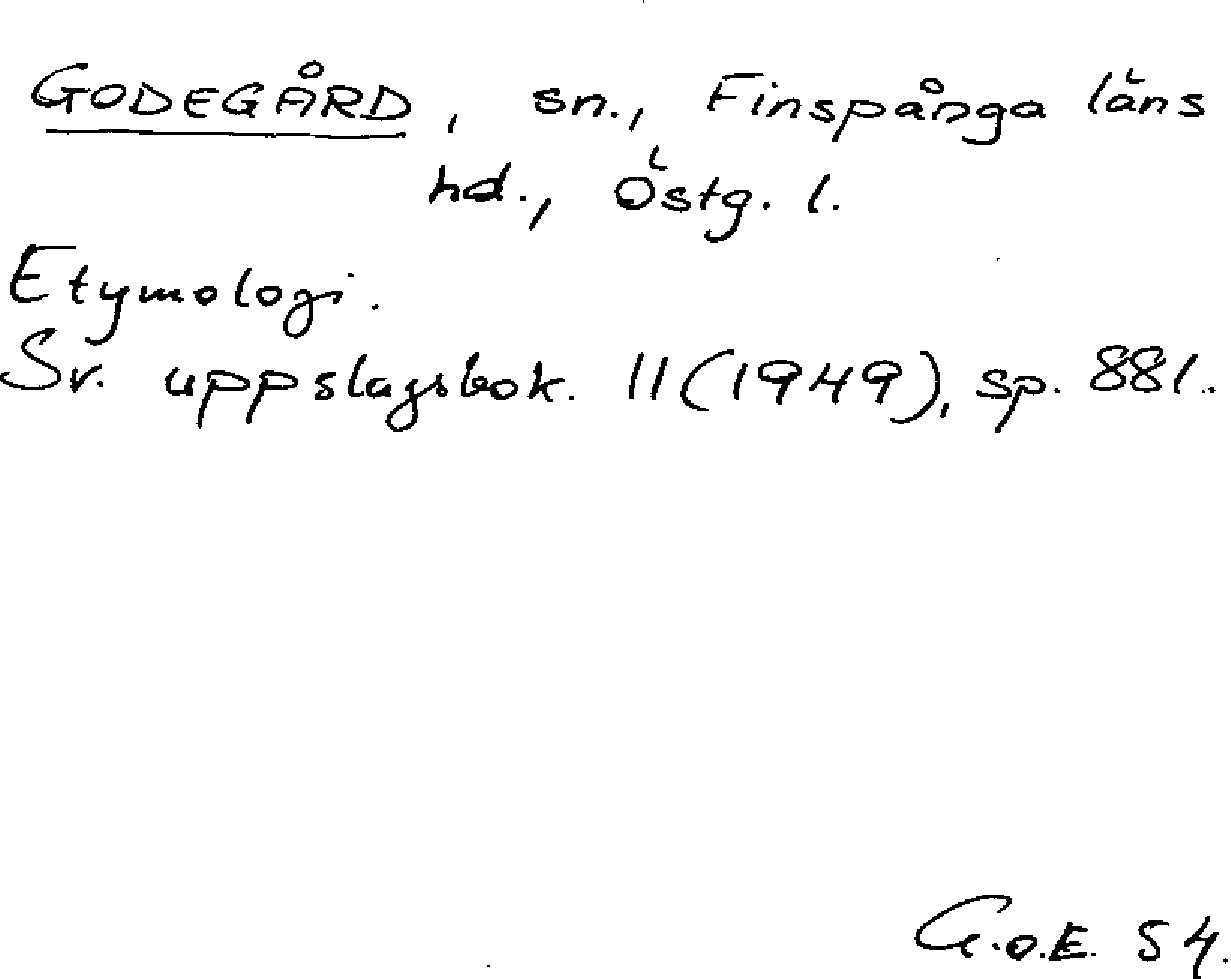 GODEGÅRD, sn., Finspånga läns
hd., Östg. l.
Etymologi.
Sv. uppslagsbok. 11 (1949), sp. 881.
G.o.E. 54.